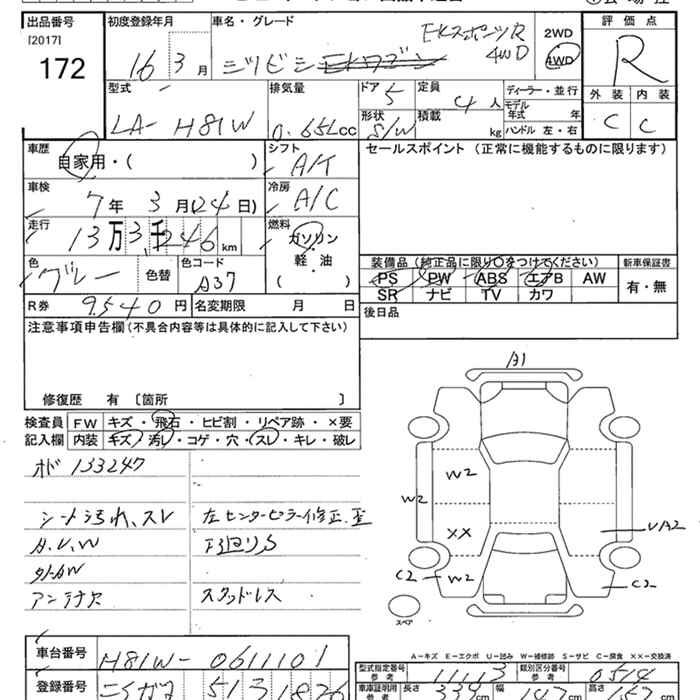 出品番号 初度登録年月 車名・グレード 評価点
[2017]
172
16年 3月 ミツビシ EKワゴン EKスポーツR 4WD
2WD
4WD
R
型式 排気量 ドア 定員 ディーラー・並行 外装 内装
LA- H81W 0.65Lcc 5 4人 モデル年式 年 C C
形状 積載
S/W kg ハンドル 左・右
車歴 シフト セールスポイント (正常に機能するものに限ります)
自家用・( ) A/T
車検 冷房
7年 3月(24日) A/C
走行 燃料
13万3千246km ガソリン
軽油
( )
色 色替 色コード 装備品 (純正品に限り○をつけてください) 新車保証書
グレー A37 PS PW ABS エアB AW 有・無
SR ナビ TV カワ
R券 9540円 名変期限 月 日 後日品
注意事項申告欄(不具合内容等は具体的に記入して下さい)
修復歴 有 〔箇所 〕
検査員 FW キズ・飛石・ヒビ割・リペア跡・×要
記入欄 内装 キズ・汚レ・コゲ・穴・スレ・キレ・破レ
メ 133247
シート汚れ、スレ 左センターピラー修正、歪
A.U.W 下廻りS
外小W
アンテナ欠 スタッドレス
A1
W2
W2
XX
UA2
C2
W2
C2
スペア
A-キズ E-エクボ U-凹み W-補修跡 S-サビ C-腐食 XX-交換済
車台番号 H81W-0611101
型式指定番号 参考 11113 類別区分番号 参考 0514
登録番号 513
車庫証明用 参考 長さ 339cm 幅 147cm 高さ cm